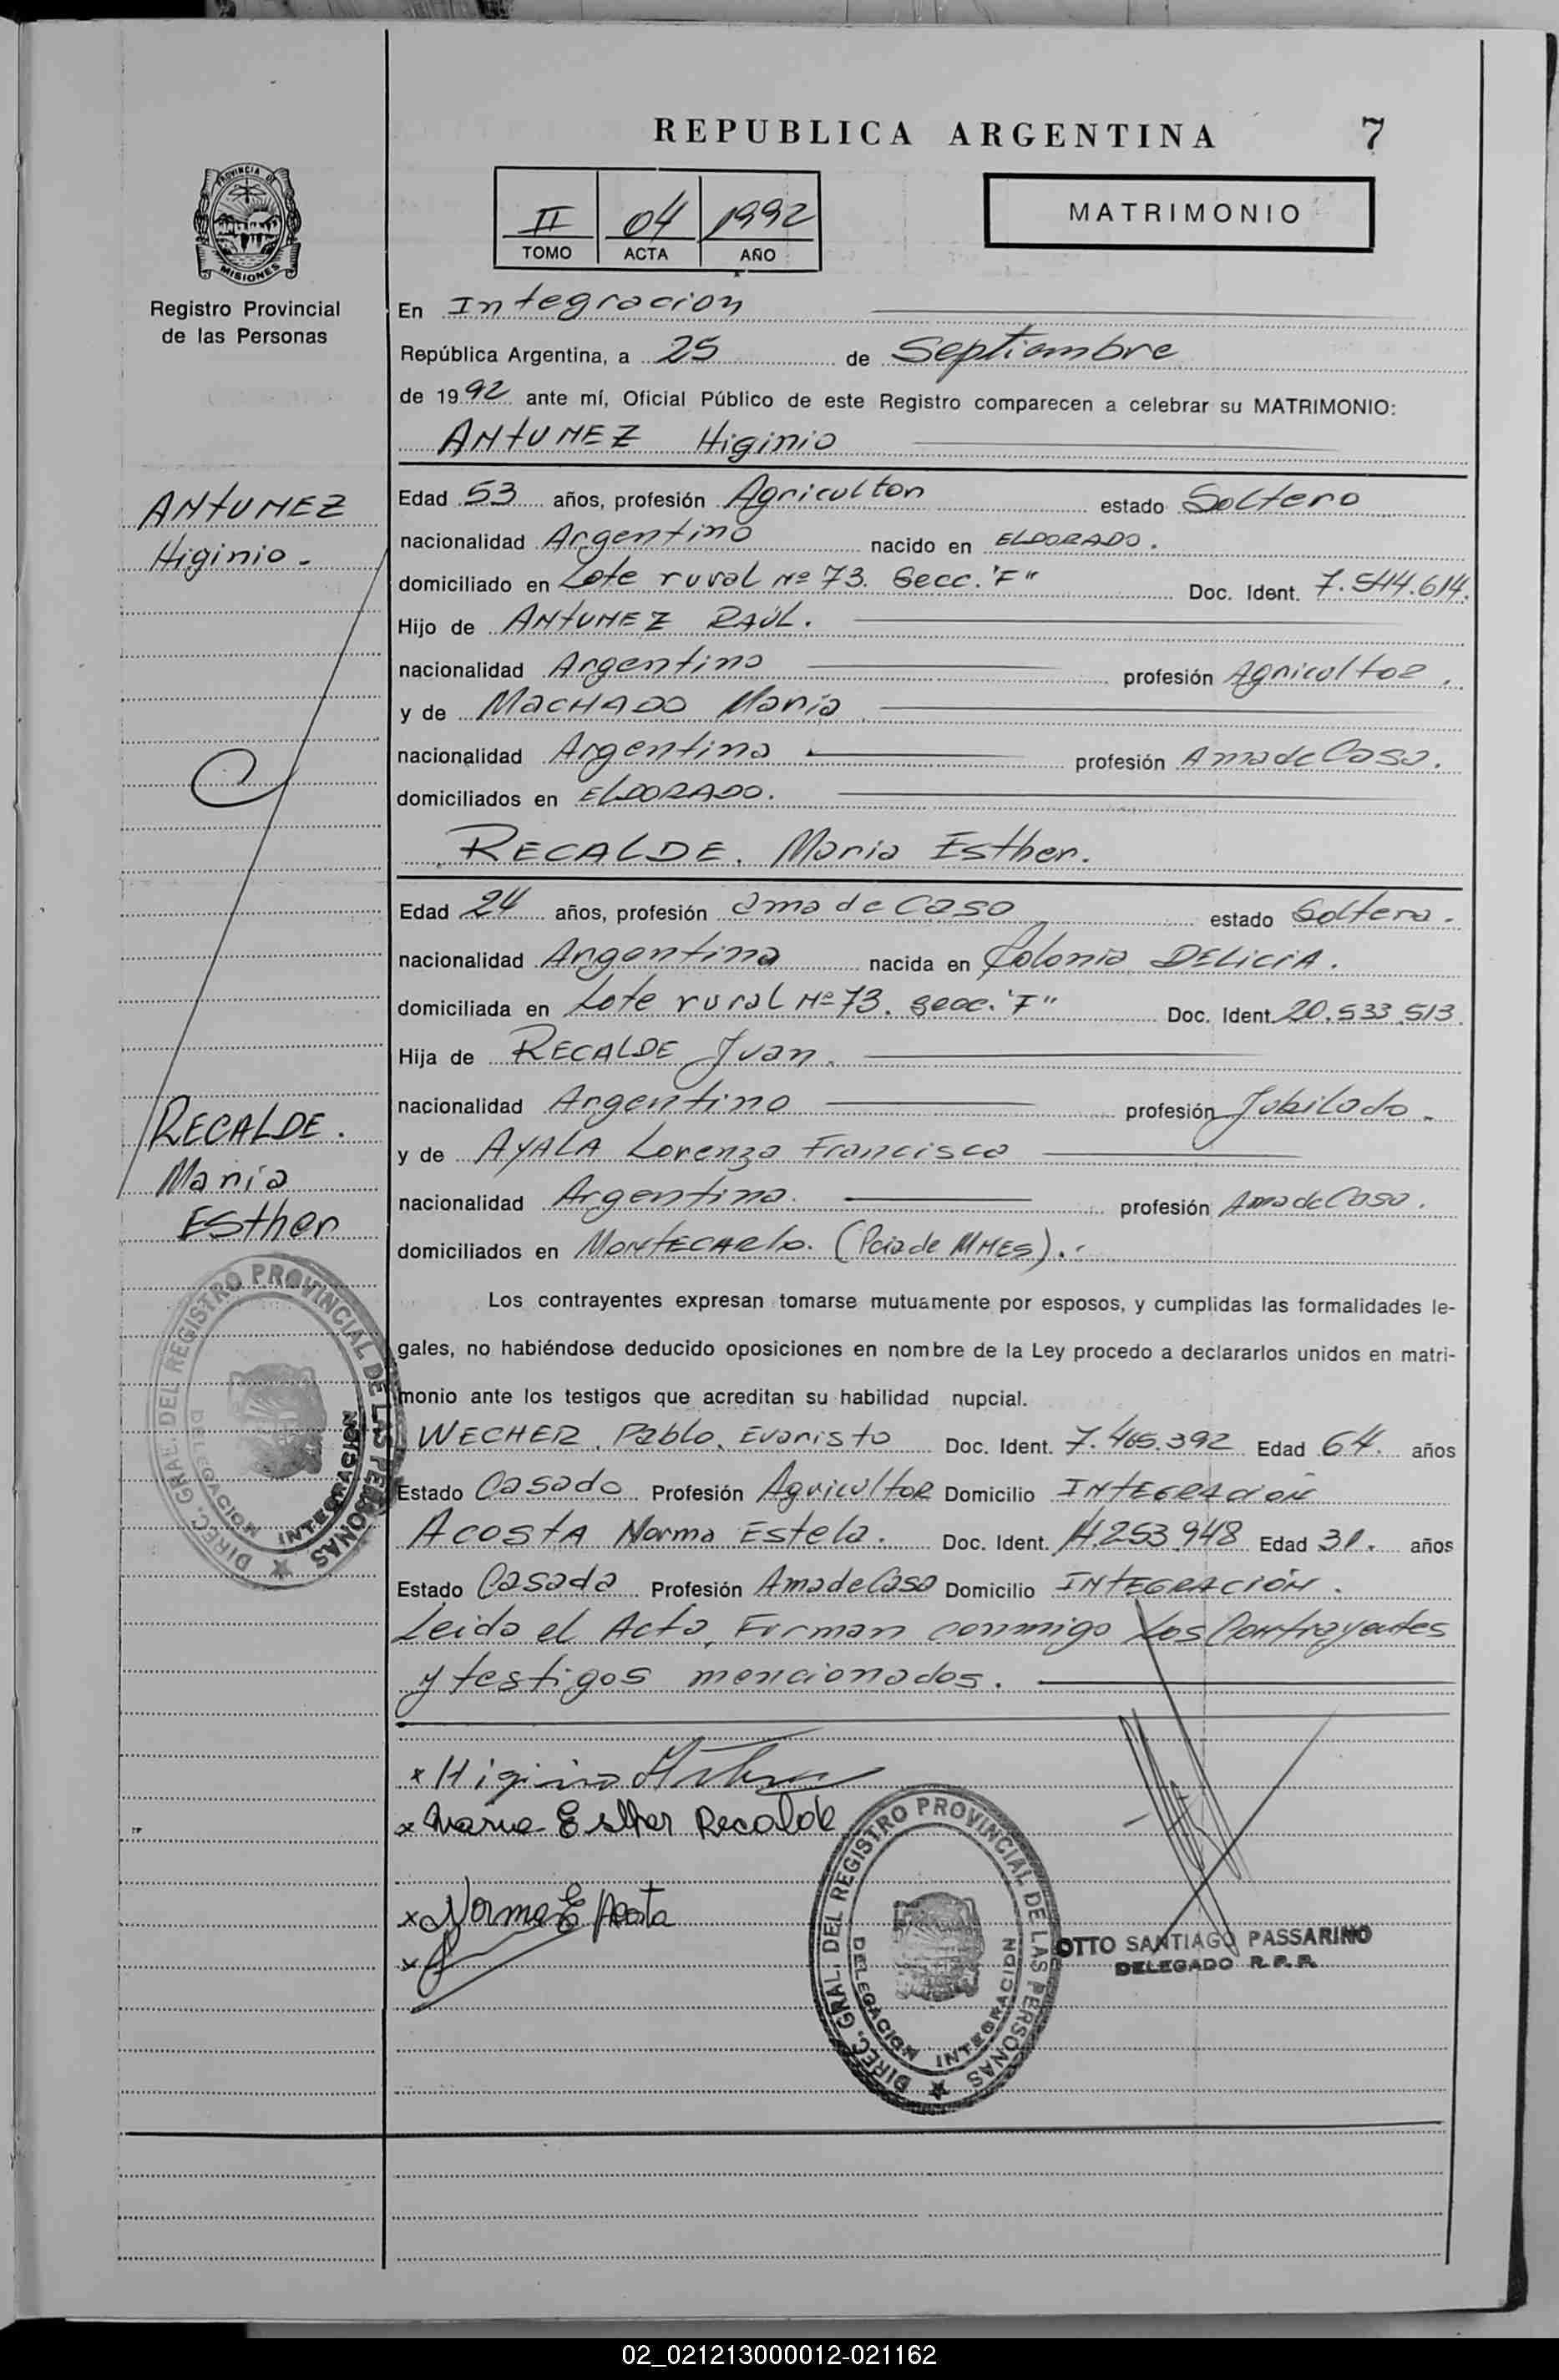 REPUBLICA ARGENTINA 7
PROVINCIA DE
MISIONES
Registro Provincial
de las Personas
II 04 1992
TOMO ACTA AÑO
MATRIMONIO
En Integracion
República Argentina, a 25 de Septiembre
de 1992 ante mí, Oficial Público de este Registro comparecen a celebrar su MATRIMONIO:
ANTUNEZ Higinio
ANTUNEZ
Higinio.
Edad 53 años, profesión Agricultor estado Soltero
nacionalidad Argentino nacido en ELDORADO.
domiciliado en Lote rural Nº 73. Secc. "F" Doc. Ident. 7.544.614.
Hijo de ANTUNEZ RAÚL.
nacionalidad Argentino profesión Agricultor.
y de MACHADO María
nacionalidad Argentina profesión Ama de Casa.
domiciliados en ELDORADO.
RECALDE. Maria Esther.
Edad 24 años, profesión ama de casa estado Soltera.
nacionalidad Argentina nacida en Colonia DELICIA.
domiciliada en Lote rural Nº 73. Secc. "F" Doc. Ident. 20.533.513
Hija de RECALDE Juan.
nacionalidad Argentino profesión Jubilado.
RECALDE.
María
Esther
y de AYALA Lorenza Francisca
nacionalidad Argentina. profesión Ama de Casa.
domiciliados en MONTECARLO. (Pcia de MNES).
Los contrayentes expresan tomarse mutuamente por esposos, y cumplidas las formalidades le-
gales, no habiéndose deducido oposiciones en nombre de la Ley procedo a declararlos unidos en matri-
monio ante los testigos que acreditan su habilidad nupcial.
WECHER, Pablo, Evaristo Doc. Ident. 7.465.392 Edad 64. años
Estado Casado Profesión Agricultor Domicilio INTEGRACION
ACOSTA Norma Estela. Doc. Ident. 14.253.948 Edad 31. años
Estado Casada Profesión Ama de Casa Domicilio INTEGRACIÓN.
Leida el Acta, Firman conmigo Los Contrayentes
y testigos mencionados.
DIREC. GRAL. DEL REGISTRO PROVINCIAL DE LAS PERSONAS
DELEGACION INTEGRACION
x Higinio
x Maria Esther Recalde
x Norma E Acosta
x
DIREC. GRAL. DEL REGISTRO PROVINCIAL DE LAS PERSONAS
DELEGACION INTEGRACION
OTTO SANTIAGO PASSARINO
DELEGADO R.P.P.
02_021213000012-021162